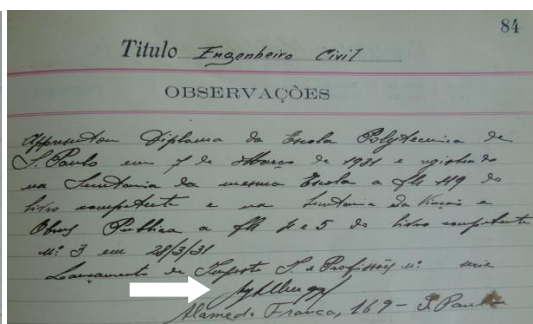 84
Titulo Engenheiro Civil
OBSERVAÇÕES
Appresentou Diploma da Escola Polytecnica de
S. Paulo em 7 de Março de 1931 e registrado
na Secretaria da mesma Escola a fls 119 do
livro competente e na Secretaria da Viação e
Obras Publica a fls e 5 do livro competente
nº 3 em 28/3/31
Lançamento de Imposto I. e Profissões nº: serie
Alameda Franca, 169 - S. Paulo